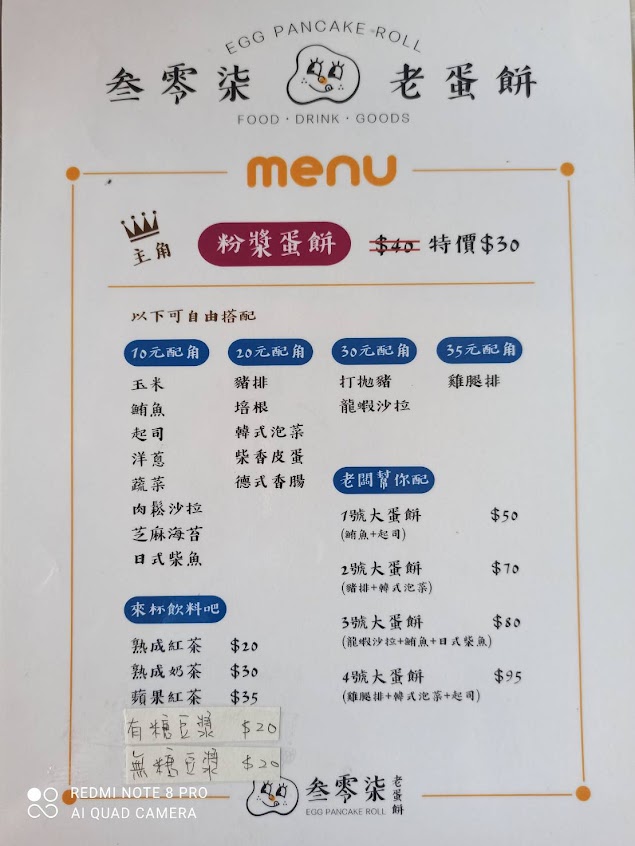 EGG PANCAKE ROLL
叁零柒 老蛋餅
FOOD · DRINK · GOODS
menu
主角 粉漿蛋餅 $40 特價$30
以下可自由搭配
10元配角 20元配角 30元配角 35元配角
玉米 豬排 打拋豬 雞腿排
鮪魚 培根 龍蝦沙拉
起司 韓式泡菜
洋蔥 柴香皮蛋
蔬菜 德式香腸
肉鬆沙拉
芝麻海苔
日式柴魚
老闆幫你配
1號大蛋餅 $50
(鮪魚+起司)
2號大蛋餅 $70
(豬排+韓式泡菜)
3號大蛋餅 $80
(龍蝦沙拉+鮪魚+日式柴魚)
4號大蛋餅 $95
(雞腿排+韓式泡菜+起司)
來杯飲料吧
熟成紅茶 $20
熟成奶茶 $30
蘋果紅茶 $35
有糖豆漿 $20
無糖豆漿 $20
叁零柒 老蛋餅
EGG PANCAKE ROLL
REDMI NOTE 8 PRO
AI QUAD CAMERA